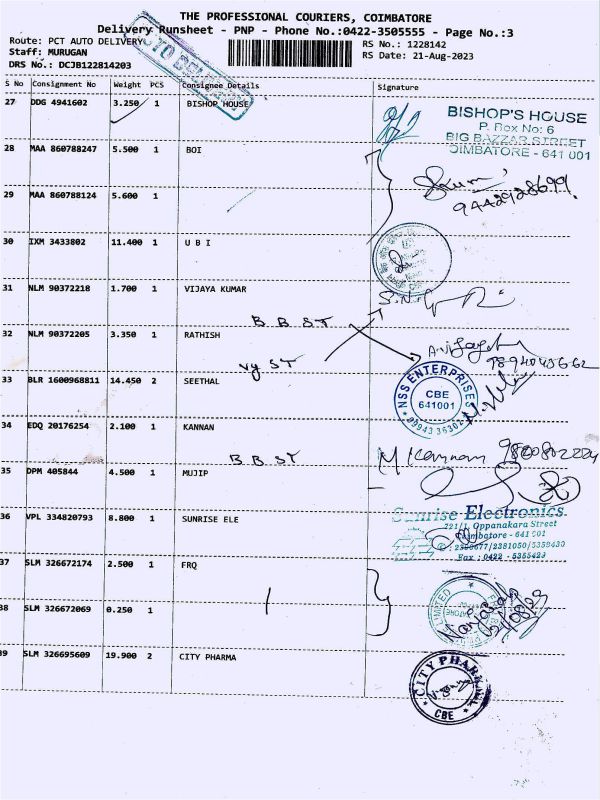 THE PROFESSIONAL COURIERS, COIMBATORE
Delivery Runsheet - PNP - Phone No.:0422-3505555 - Page No.:3
Route: PCT AUTO DELIVERY
RS No.: 1228142
Staff: MURUGAN
RS Date: 21-Aug-2023
DRS No.: DCJB122814203
S No Consignment No Weight PCS Consignee Details Signature
27 DDG 4941602 3.250 1 BISHOP HOUSE
BISHOP'S HOUSE
P. Box No: 6
BIG BAZZAR STREET
COIMBATORE - 641 001
28 MAA 860788247 5.500 1 BOI
29 MAA 860788124 5.600 1
30 IXM 3433802 11.400 1 U B I
31 NLM 90372218 1.700 1 VIJAYA KUMAR
B B ST
32 NLM 90372205 3.350 1 RATHISH
Vy ST
33 BLR 1600968811 14.450 2 SEETHAL
NSS ENTERPRISES
CBE
641001
34 EDQ 20176254 2.100 1 KANNAN
M Kannan
B B ST
35 DPM 405844 4.500 1 MUJIP
36 VPL 334820793 8.800 1 SUNRISE ELE
Sunrise Electronics
721/1, Oppanakara Street
Coimbatore - 641 001
Fax : 0422 - 5355423
37 SLM 326672174 2.500 1 FRQ
38 SLM 326672069 0.250 1
LIMITED
39 SLM 326695609 19.900 2 CITY PHARMA
CITY PHARMA
CBE